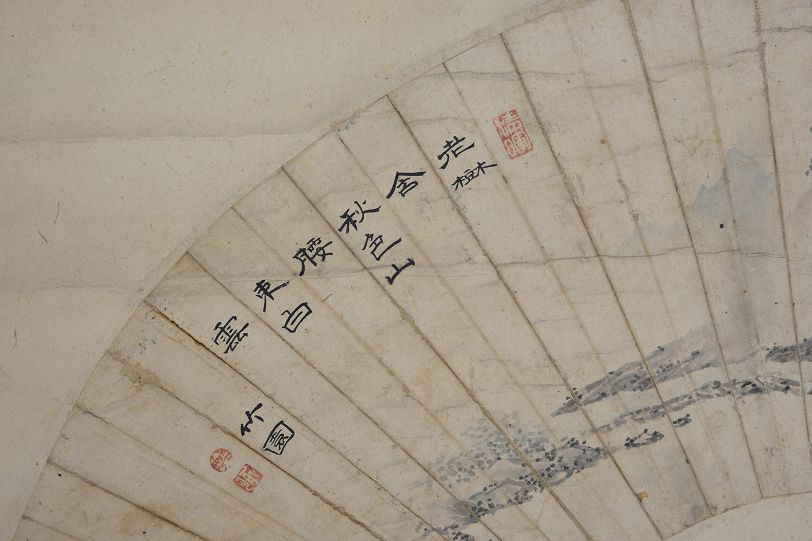 老樹
含
秋色山
腰
束白
雲
竹園